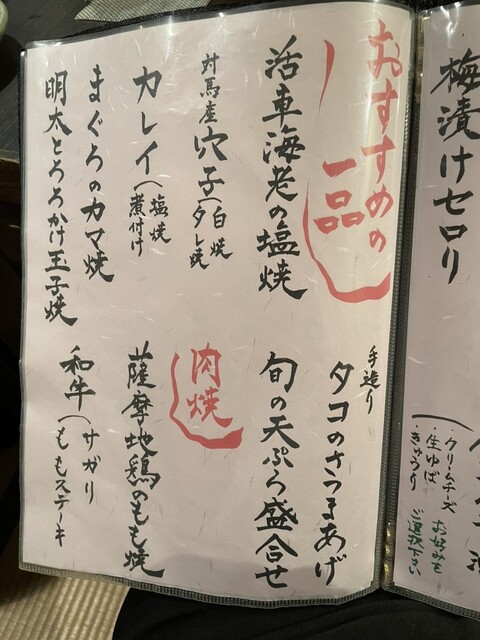 梅漬けセロリ
・クリームチーズ
・生ゆば
・きゅうり
お好みを
ご選択下さい
おすすめの
一品
活車海老の塩焼
対馬産 穴子(白焼
タレ焼
カレイ(塩焼
煮付け
まぐろのカマ焼
明太とろろかけ玉子焼
手造り
タコのさつまあげ
旬の天ぷら盛合せ
肉焼
薩摩地鶏のもも焼
和牛(サガリ
ももステーキ